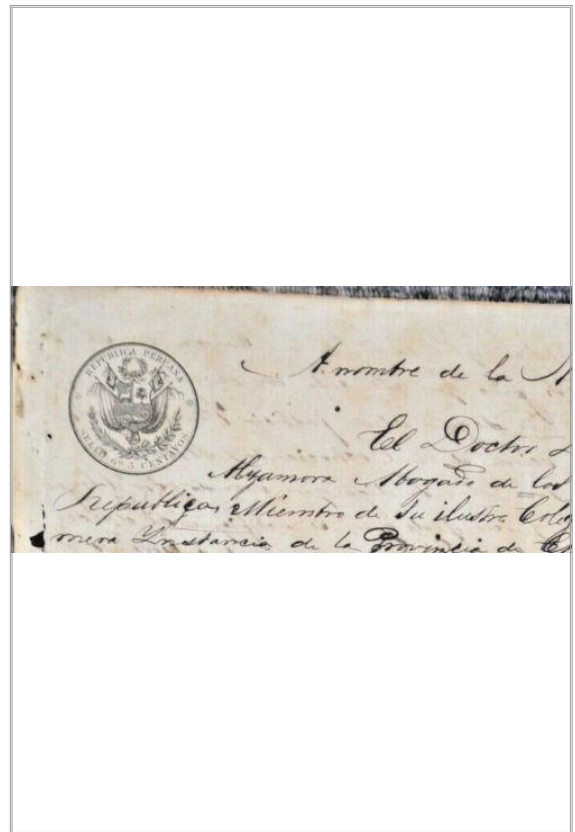 REPUBLICA PERUANA
SELLO 6º 5 CENTAVOS
A nombre de la N
El Doctor
Abogado de los
Republica, Miembro de Su ilustre Coleg
mera Instancia de la Provincia de